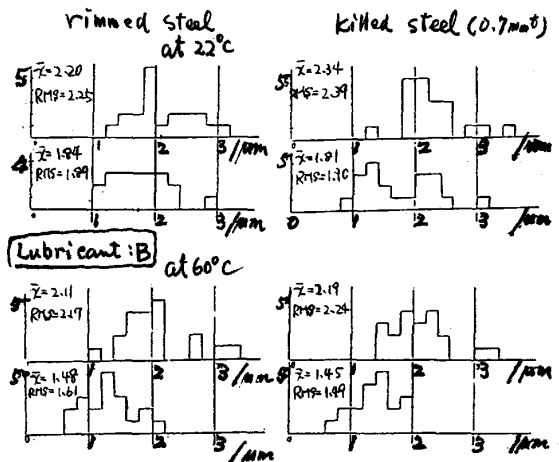 rimmed steel
at 22°C
killed steel (0.7mmᵗ)
5 x̄=2.20
RMS=2.25
1 2 3 /μm
4 x̄=1.84
RMS=1.89
0 1 2 3 /μm
5 x̄=2.34
RMS=2.39
1 2 3 /μm
5 x̄=1.81
0 1 2 3 /μm
Lubricant:B
at 60°C
x̄=2.11
RMS=2.17
1 2 3 /μm
5 x̄=1.48
RMS=1.61
1 2 3 /μm
5 x̄=2.19
RMS=2.24
1 2 3 /μm
5 x̄=1.45
RMS=1.49
1 2 3 /μm